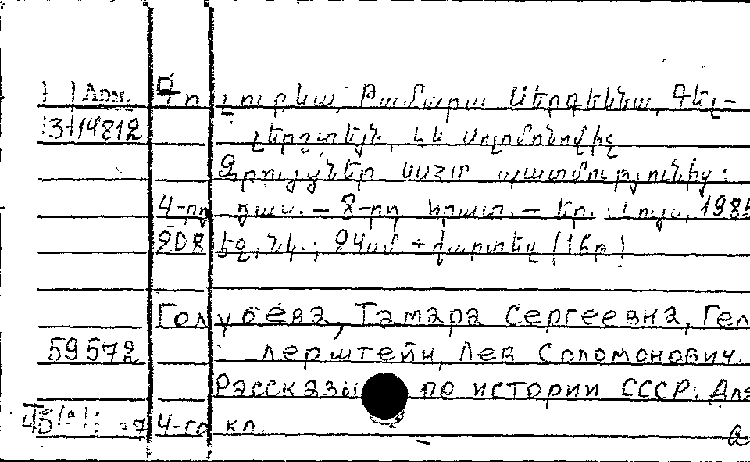 Арм. Գոլուբևա, Թամարա Սերգեևնա, Գել-
3-14812 լերշտեյն, Լև Սոլոմոնովիչ
Զրույցներ ՍՍՀՄ պատմությունից:
4-րդ դաս. – 8-րդ հրատ. – Եր.: Լույս, 1985
208 էջ, նկ.; 24սմ + քարտեզ (1եր)
Голубева, Тамара Сергеевна, Гел
59572 лерштейн, Лев Соломонович.
Рассказы по истории СССР: Для
4-го кл